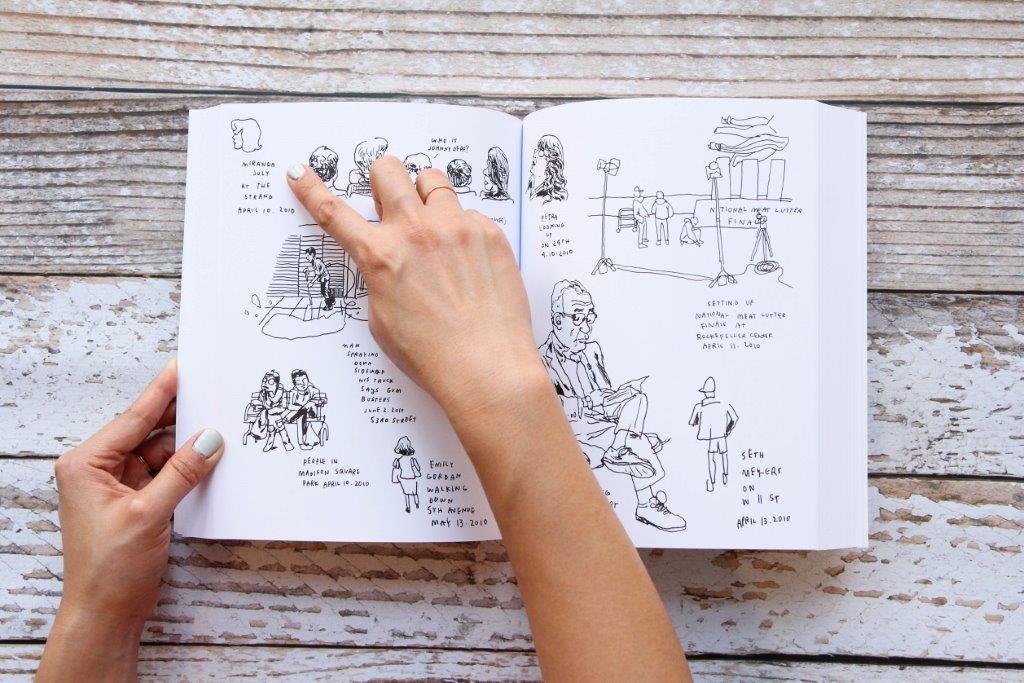 MIRANDA
JULY
AT THE
STRAND
APRIL 10. 2010
WHO IS
JOHNNY DEPP?
MAN
SPRAYING
DOWN
SIDEWALK
HIS TRUCK
SAYS GUM
BUSTERS
JUNE 2. 2010
53RD STREET
PEOPLE IN
MADISON SQUARE
PARK APRIL 10. 2010
EMILY
GORDAN
WALKING
DOWN
5TH AVENUE
MAY 13. 2010
PETRA
LOOKING
UP
ON 28TH
4.10.2010
NATIONAL MEAT CUTTER
FINA
SETTING UP
NATIONAL MEAT CUTTER
FINALS AT
ROCKEFELLER CENTER
APRIL 11. 2010
SETH
MEYERS
ON
W 11 ST
APRIL 13. 2010